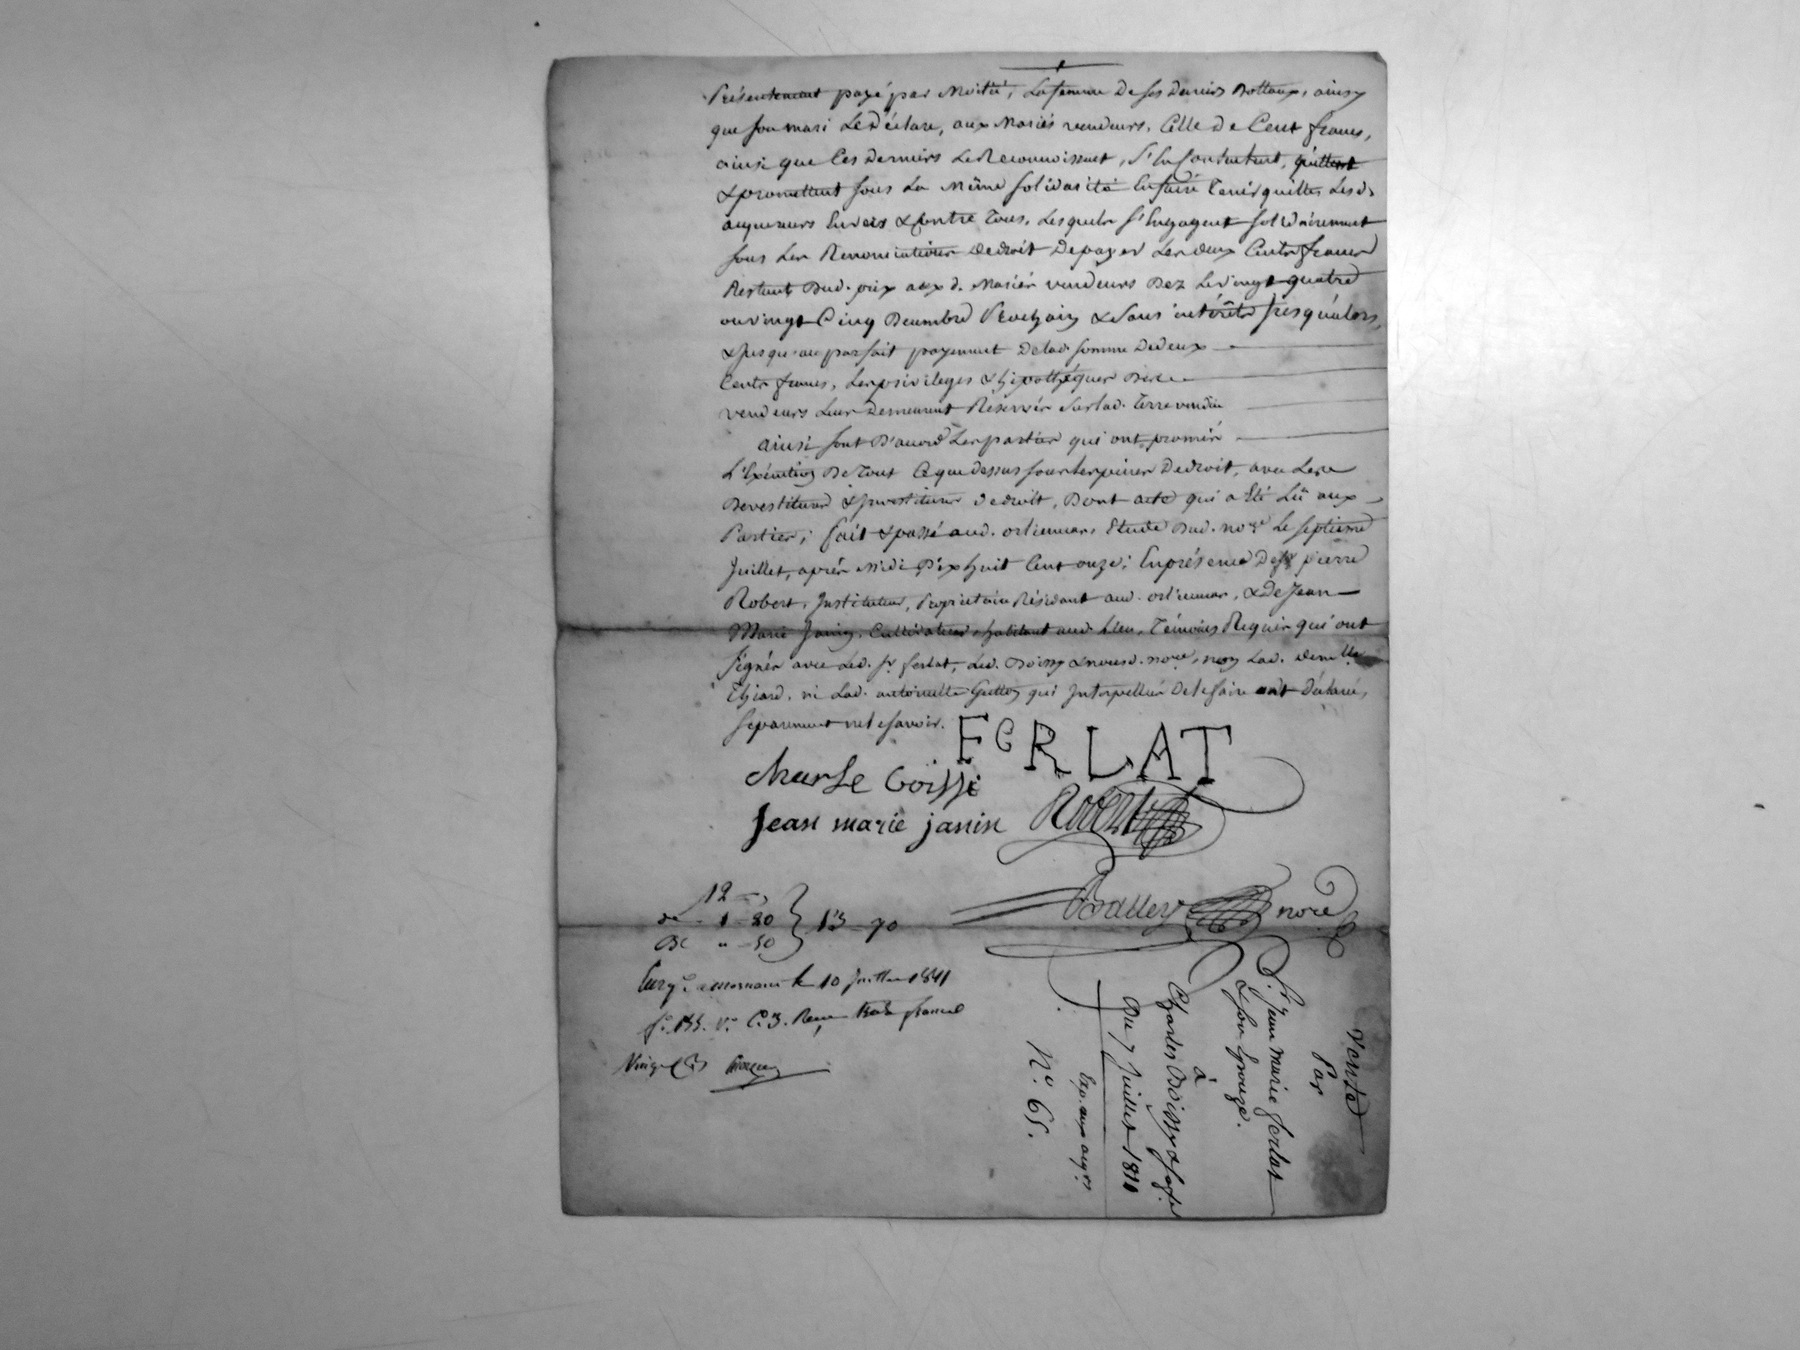 Présentement payé par Moitié, La femme De ses Deniers Dottaux, ainsy
que son mari Le Déclare, aux Mariés vendeurs, Celle De Cent francs,
ainsi que Ces Derniers Le Reconnoissent, S'En Contentent, quittent
& promettent sous La Même solidarité En faire Tenir quittes Lesd.
acquereurs Envers & Contre Tous, Lesquels S'Engagent solidairement
sous Les Renonciations De droit De payer Les deux Cents francs
Restant Dud. prix aux d. Mariés vendeurs Dez Le vingt quatre
ou vingt Cinq Decembre Prochain & Sans intérêts Jusqu'alors,
& Jusqu'au parfait payement De lad. somme De deux
Cents francs, Les privileges & hipothéques Des
vendeurs Leur Demeurent Réservés Sur lad. Terre vendue
ainsi sont D'accord Les parties qui ont promis
L'Exécution De Tout Ce que Dessus sous les peines De droit, avec Les
Devestitures & Investitures De droit, Dont acte qui a Eté Lû aux
Parties; fait & passé aud. orlienas, Etude Dud. nore Le septieme
Juillet, après Midi Dix huit Cent onze; En présence De Sr pierre
Robert, Instituteur, Proprietaire Résidant aud. orlienas, & De Jean
Marie Janin, Cultivateur, habitant aud. Lieu, Témoins Requis qui ont
signés avec Led. Sr ferlat, Led. Boissy & nousd. nore, non Lad. demlle
Thiard, ni Lad. antoinette Guttoz qui Interpellées De le faire ont Déclaré,
séparement ne le savoir.
FeRLAT
charle Boissi
Jean marie janin Robert
Balley nore
12 = "
de 1 = 20 } 13 = 70
De " = 50
Enrgé à mornant le 10 Juillet 1811
fo. 155. vo. Co. 3. Reçu treize francs
Vente
Par
Sr. Jean Marie ferlat
& son Epouze.
à
Charles Boissy & sa fe
Du 7 Juillet 1811
Exp. aux acqrs
No. 65.